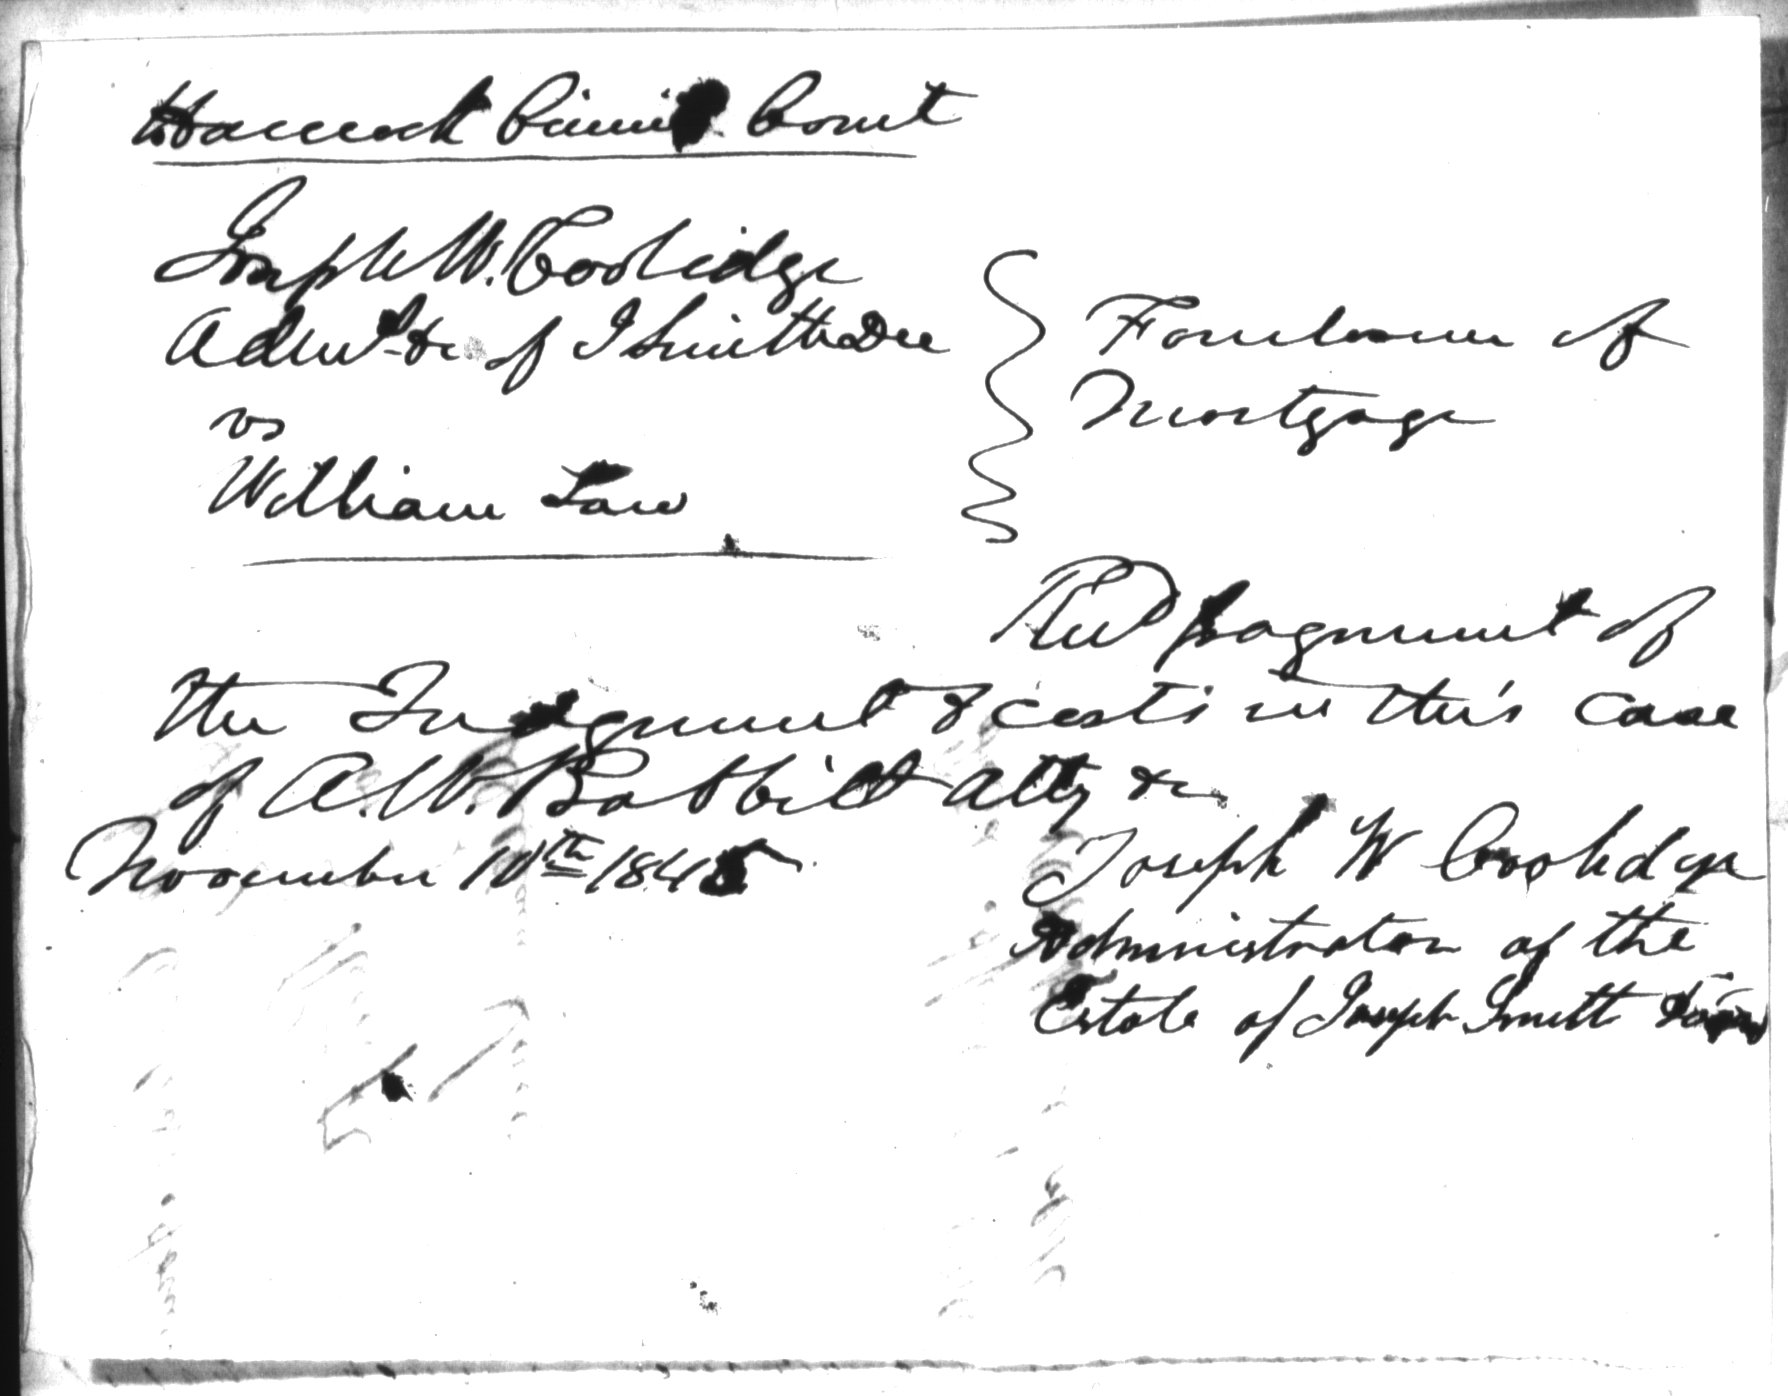 Hancock Circuit Court
Joseph W. Coolidge
Admr &c of J Smith Dec
vs
William Law
Foreclosure of
Mortgage
Recd payment of
the Judgment & costs in this case
of A. W. Babbitt Atty &c
November 10th 1845
Joseph W Coolidge
Administrator of the
Estate of Joseph Smith